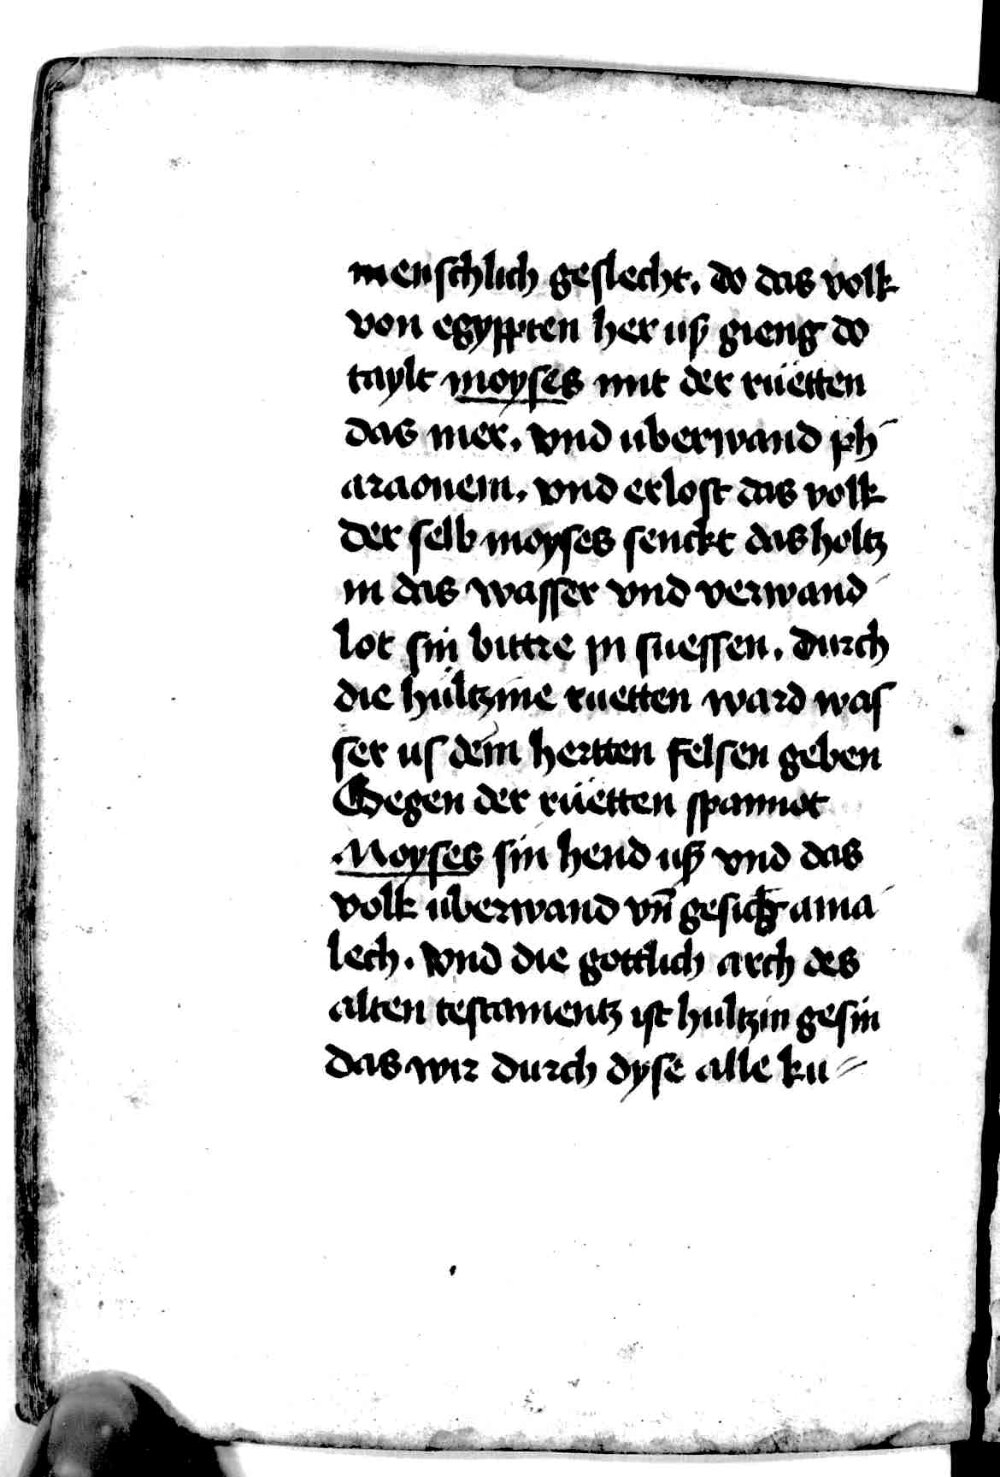 menschlich geslecht. do das volk
von egyppten her uß gieng do
taylt moyses mit der rüetten
das mer. vnd uberwand ph
araonem. vnd erlost das volk
der selb moyses senckt das holtz
in das wasser vnd verwand
lot sin bittre in suessen. durch
die hültzine ruetten ward was
ser us dem hertten felsen geben
Gegen der rüetten spannot
Moyses sin hend uß vnd das
volk uberwand vn̄ gesicht ama
lech. vnd die gottlich arch des
alten testamentz ist hultzin gesin
das wir durch dyse alle ku